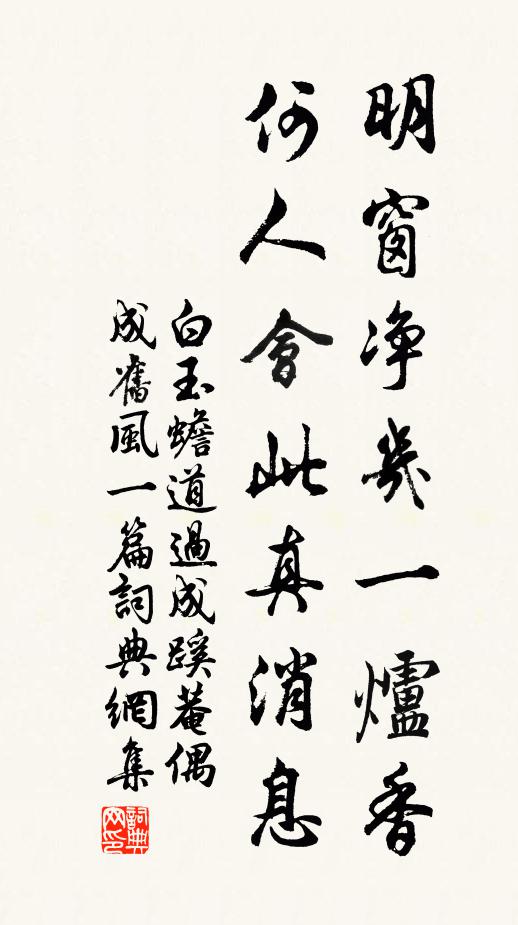 明窗净幾一爐香
何人會此真消息
白玉蟾道過成蹊菴偶
成舊風一篇詞典網集
詞典网印